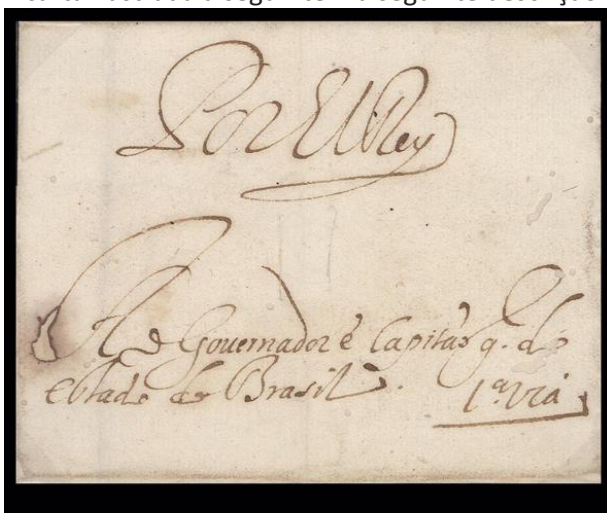 Por El Rey
Ao Gouernador e Capitão g. do
Estado do Brasil.
1ª Via